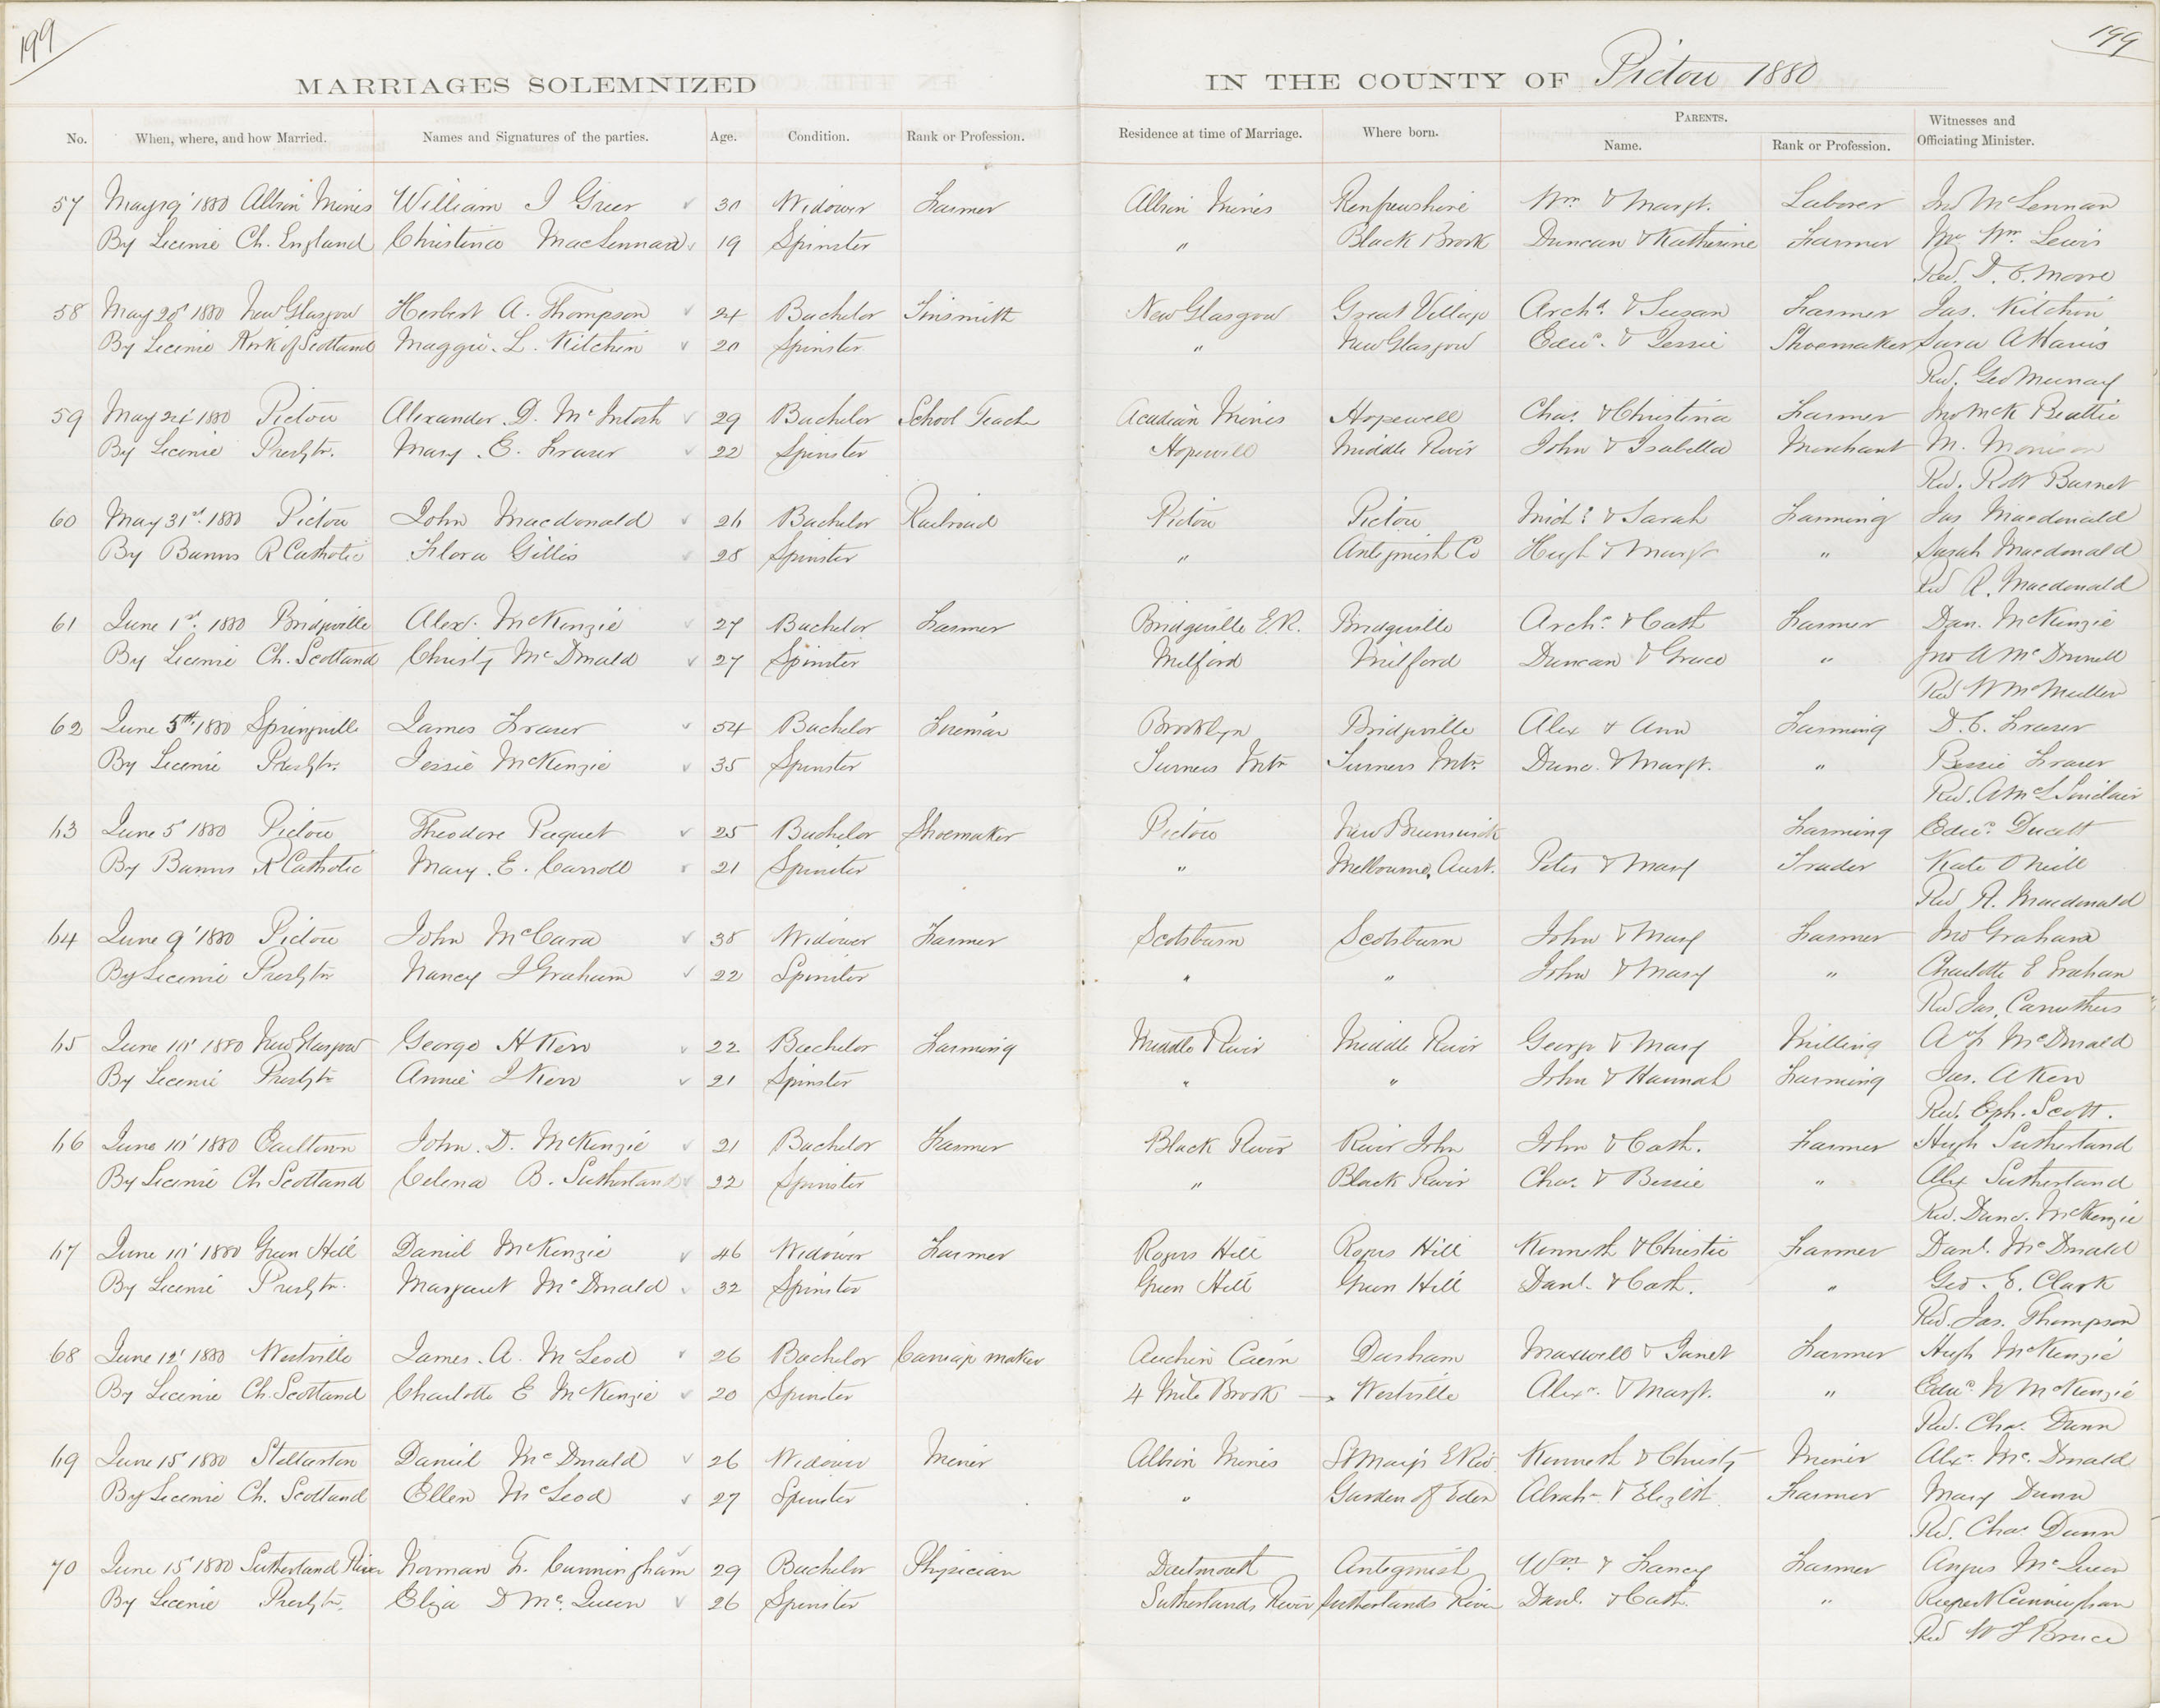 199
199
MARRIAGES SOLEMNIZED IN THE COUNTY OF Pictou 1880
No. When, where, and how Married. Names and Signatures of the parties. Age. Condition. Rank or Profession. Residence at time of Marriage. Where born. PARENTS. Name. Rank or Profession. Witnesses and Officiating Minister.
57 May 19' 1880 Albion Mines William J Greer 30 Widower Farmer Albion Mines Renfrewshire Wm & Margt. Laborer Jno McLennan
By License Ch. England Christina MacLennan 19 Spinster " Black Brook Duncan & Katherine Farmer Mr Wm Lewis
Rev. D. C. Moore
58 May 20' 1880 New Glasgow Herbert A. Thompson 24 Bachelor Tinsmith New Glasgow Great Village Archd. & Susan Farmer Jas. Kitchin
By License Kirk of Scotland Maggie. L. Kitchin 20 Spinster " New Glasgow Edwd. & Jessie Shoemaker Sara A Harris
Rev. Geo Murray
59 May 24' 1880 Pictou Alexander. D. McIntosh 29 Bachelor School Teach Acadian Mines Hopewell Chas. & Christina Farmer Jno McK Beattie
By License Presbtn. Mary. E. Fraser 22 Spinster Hopewell Middle River John & Isabella Merchant M. Morrison
Rev. Robt Burnet
60 May 31st. 1880 Pictou John Macdonald 26 Bachelor Railroad Pictou Pictou Michl & Sarah Farming Jas Macdonald
By Banns R Catholic Flora Gillis 28 Spinster " Antigonish Co Hugh & Margt " Sarah Macdonald
Rev R. Macdonald
61 June 1st. 1880 Bridgeville Alex. McKenzie 27 Bachelor Farmer Bridgeville E.R. Bridgeville Archd. & Cath Farmer Dan. McKenzie
By License Ch. Scotland Christy McDonald 27 Spinster Milford Milford Duncan & Grace " Jno A McDonald
Rev W McMillan
62 June 5th. 1880 Springville James Fraser 54 Bachelor Foreman Brooklyn Bridgeville Alex & Ann Farming D. C. Fraser
By License Presbtn. Jessie McKenzie 35 Spinster Turners Mtn Turners Mtn. Dunc. & Margt. " Bessie Fraser
Rev. A McL Sinclair
63 June 5' 1880 Pictou Theodore Paquet 25 Bachelor Shoemaker Pictou New Brunswick Farming Edwd.
By Banns R Catholic Mary. E. Carroll 21 Spinster " Melbourne, Aust. Peter & Mary Trader Kate O'Neill
Rev R. Macdonald
64 June 9' 1880 Pictou John McCara 38 Widower Farmer Scotsburn Scotsburn John & Mary Farmer Jno Graham
By License Presbtn Nancy J Graham 22 Spinster " " John & Mary " Charlotte E Graham
Rev Jas. Carruthers
65 June 10' 1880 New Glasgow George H Kerr 22 Bachelor Farming Middle River Middle River George & Mary Milling McDonald
By License Presbtn Annie J Kerr 21 Spinster " " John & Hannah Farming Jas. A Kerr
Rev. Eph. Scott.
66 June 10' 1880 Earltown John. D. McKenzie 21 Bachelor Farmer Black River River John John & Cath. Farmer Hugh Sutherland
By License Ch Scotland Celena B. Sutherland 22 Spinster " Black River Chas. & Bessie " Alex Sutherland
Rev. Danl. McKenzie
67 June 10' 1880 Green Hill Daniel McKenzie 46 Widower Farmer Rogers Hill Rogers Hill Kenneth & Christie Farmer Danl. McDonald
By License Presbtn. Margaret McDonald 32 Spinster Green Hill Green Hill Danl. & Cath. " Geo. E. Clark
Rev. Jas. Thompson
68 June 12' 1880 Westville James. A. McLeod 26 Bachelor Carriage maker Auchin Cairn Durham Maxwell & Janet Farmer Hugh McKenzie
By License Ch. Scotland Charlotte E McKenzie 20 Spinster 4 Mile Brook Westville Alexr. & Margt. " Edwd N McKenzie
Rev. Chas. Dunn
69 June 15' 1880 Stellarton Daniel McDonald 26 Widower Miner Albion Mines St Marys E Riv Kenneth & Christy Miner Alexr. McDonald
By License Ch. Scotland Ellen McLeod 27 Spinster " Garden of Eden Abrahm & Elizbth Farmer Mary Dunn
Rev. Chas Dunn
70 June 15' 1880 Sutherland River Norman F. Cunningham 29 Bachelor Physician Dartmouth Antigonish Wm. & Fancy Farmer Angus McQueen
By License Presbtn. Eliza D McQueen 26 Spinster Sutherlands River Sutherlands River Danl. & Cath. " Rupert Cunningham
Rev W L Bruce